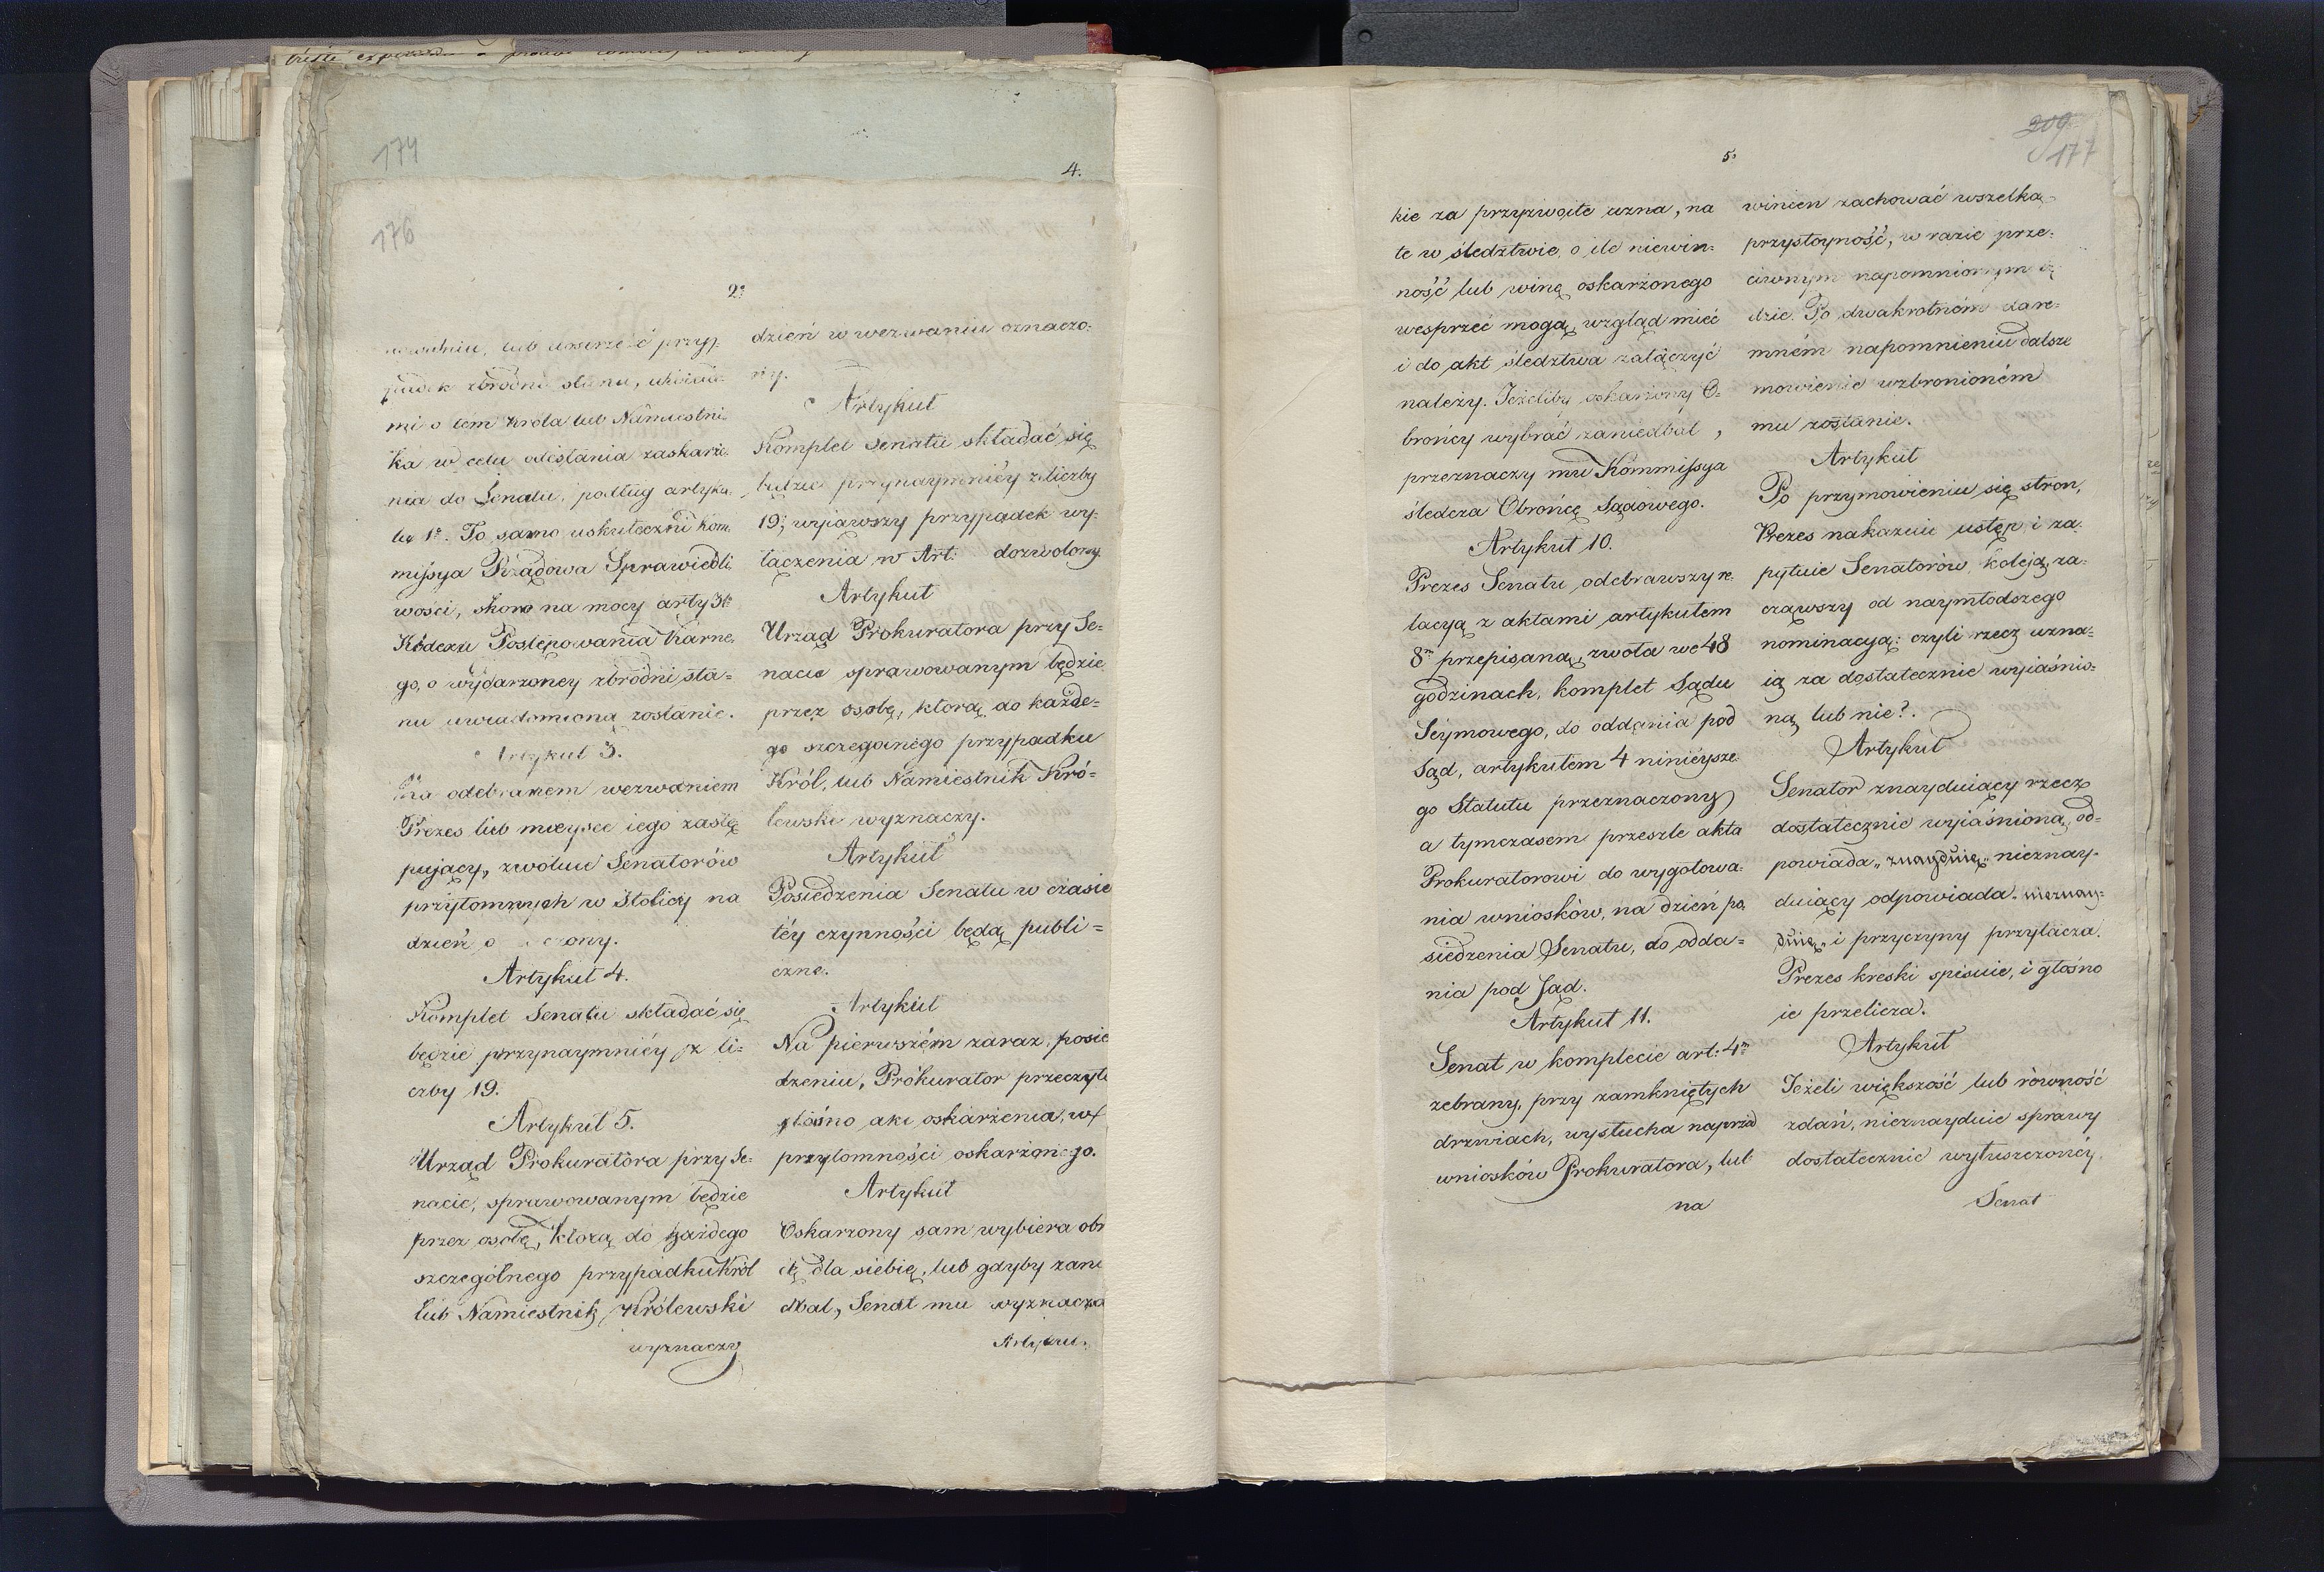 174
4.
176
2.
lub dostrzeże przy-
padek zbrodni stanu, uwiado-
mi o tém Króla lub Namiestni-
ka w celu odesłania zaskarże-
nia do Senatu, podług artyku-
łu 1º. To samo uskuteczni Kom-
missya Rządowa Sprawiedli-
wości, skoro na mocy arty 31º
Kodexu Postępowania Karne-
go, o wydarzoney zbrodni sta=
nu uwiadomioną zostanie.
Artykuł 3.
Za odebraniem wezwaniem
Prezes lub mieysce iego zastę
pujący, zwołuie Senatorów
przytomnych w Stolicy na
dzień
Artykuł 4.
Komplet Senatu składać się
będzie przynaymniéy z li-
czby 19.
Artykuł 5.
Urząd Prokuratora przy Se-
nacie, sprawowanym będzie
przez osobę, którą do każdego
szczególnego przypadku Król
lub Namiestnik Królewski
wyznaczy
dzień w wezwaniu oznaczo-
ny.
Artykuł
Komplet Senatu składać się
będzie przynaymniéy z liczby
19; wyiąwszy przypadek wy-
łączenia w Art: dozwolony
Artykuł
Urząd Prokuratora przy Se=
nacie sprawowanym będzie
przez osobę, którą do każde=
go szczególnego przypadku
Król, lub Namiestnik Kró=
lewski wyznaczy.
Artykuł
Posiedzenia Senatu w czasie
téy czynności będą publi=
czne.
Artykuł
Na pierwszém zaraz, posie
dzeniu, Prokurator przeczyta
głośno akt oskarżenia, w
przytomności oskarżonego.
Artykuł
Oskarżony sam wybiera obr
cę dla siebie, lub gdyby zani
dbał, Senat mu wyznacza
Artykuł
209
177
5.
kie za przyzwoite uzna, na
te w śledztwie, o ile niewin-
ność lub winę oskarżonego
wesprzéć mogą, wzgląd mieć
i do akt śledztwa załączyć
należy. Jeżeliby oskarżony O-
brońcy wybrać zaniedbał,
przeznaczy mu Kommissya
śledcza Obrońcę Sądowego.
Artykuł 10.
Prezes Senatu, odebrawszy re-
lacyą z aktami artykułem
8m przepisaną, zwoła we 48
godzinach, komplet Sądu
Séymowego, do oddania pod
Sąd, artykułem 4 niniéysze-
go Statutu przeznaczony,
a tymczasem przeszle akta
Prokuratorowi do wygotowa-
nia wniosków, na dzień po
siedzenia Senatu, do odda=
nia pod Sąd.
Artykuł 11.
Senat w komplecie art: 4m
zebrany, przy zamkniętych
drzwiach, wysłucha naprzód
wniosków Prokuratora, lub
na
winien zachować wszelką
przystoyność, w razie prze-
ciwnym napomnionym
dzie. Po dwakrotném dare-
mném napomnieniu dalsze
mowienie wzbronioném
mu zostanie.
Artykuł
Po przymowieniu się stron,
Prezes nakazuie ustęp i za-
pytuie Senatorów, koleją, za-
cząwszy od naymłodszego
nominacyą: czyli rzecz uzna=
ią za dostatecznie wyiaśnio-
ną lub nie?.
Artykuł
Senator znayduiący rzecz
dostatecznie wyiaśnioną, od-
powiada „znayduię„ nieznay-
duiący odpowiada „nieznay-
duię„ i przyczyny przyłącza.
Prezes kreski spisuie, i głośno
ie przelicza.
Artykuł
Jeżeli większość lub równość
zdań, nieznayduie sprawy
dostatecznie wyłuszczonéy,
Senat